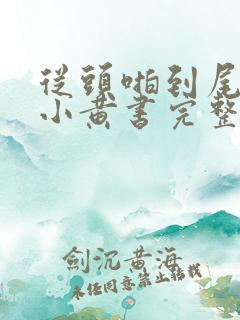 從頭啪到尾
小黃書完整
劍沉黃海
未經同意禁止轉載